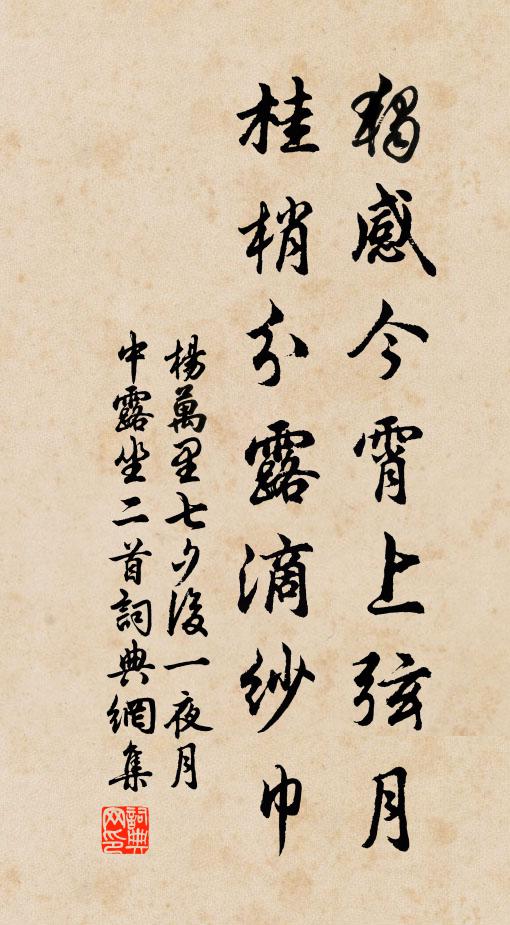 獨感今霄上弦月
桂梢分露滴紗巾
楊萬里七夕後一夜月
中露坐二首詞典網集
詞典网印